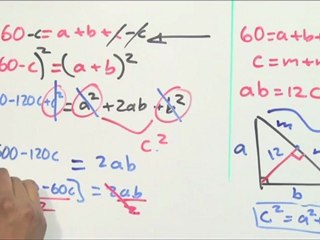 60-c=a+b+c-c
60-c)²=(a+b)²
00-120c+c²=a²+2ab+b²
c²
600-120c=2ab
-60c)=2ab
2 2
60=a+b+
c=m+
ab=12c
m
a
12
m
b
c²=a²+